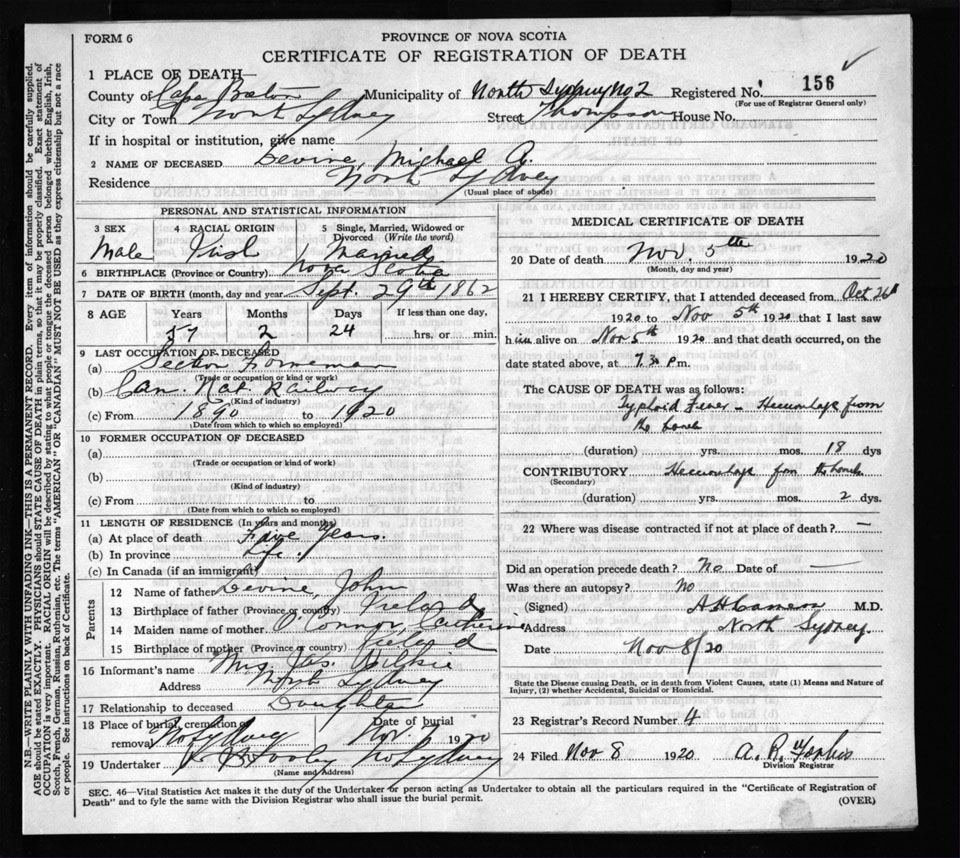 FORM 6
PROVINCE OF NOVA SCOTIA
CERTIFICATE OF REGISTRATION OF DEATH
1 PLACE OF DEATH—
County of Cape Breton Municipality of North Sydney No 2 Registered No. 156
(For use of Registrar General only)
City or Town North Sydney Street Thompson House No.
If in hospital or institution, give name
2 NAME OF DECEASED Devine, Michael A.
Residence North Sydney
(Usual place of abode)
PERSONAL AND STATISTICAL INFORMATION
3 SEX 4 RACIAL ORIGIN 5 Single, Married, Widowed or Divorced (Write the word)
Male Irish Married
6 BIRTHPLACE (Province or Country) Nova Scotia
7 DATE OF BIRTH (month, day and year) Sept. 29th 1862
8 AGE Years Months Days If less than one day,
57 2 24 hrs. or min.
9 LAST OCCUPATION OF DECEASED
(a) Section Forman
(Trade or occupation or kind of work)
(b) Can. Nat Railway
(Kind of industry)
(c) From 1890 to 1920
(Date from which to which so employed)
10 FORMER OCCUPATION OF DECEASED
(a)
(Trade or occupation or kind of work)
(b)
(Kind of industry)
(c) From to
(Date from which to which so employed)
11 LENGTH OF RESIDENCE (In years and months)
(a) At place of death Five years.
(b) In province Life.
(c) In Canada (if an immigrant)
Parents
12 Name of father Devine, John
13 Birthplace of father (Province or country) Ireland
14 Maiden name of mother O'Connor, Catherine
15 Birthplace of mother (Province or country) Ireland
16 Informant's name Mrs. Jas. Wilkie
Address North Sydney
17 Relationship to deceased Daughter
18 Place of burial, cremation, removal No Sydney Date of burial Nov. 1920
19 Undertaker No Sydney
(Name and Address)
MEDICAL CERTIFICATE OF DEATH
20 Date of death Nov. 5th 1920
(Month, day and year)
21 I HEREBY CERTIFY, that I attended deceased from Oct 26th
1920 to Nov 5th 1920 that I last saw
him alive on Nov 5th 1920 and that death occurred, on the
date stated above, at 7.30 p.m.
The CAUSE OF DEATH was as follows:
Typhoid Fever - Hemorrhage from
the bowels
(duration) yrs. mos. 18 dys
CONTRIBUTORY Hemorrhage from the bowels
(Secondary)
(duration) yrs. mos. 2 dys.
22 Where was disease contracted if not at place of death? —
Did an operation precede death? No Date of —
Was there an autopsy? No
(Signed) A H Cameron M.D.
Address North Sydney.
Date Nov 8/20
State the Disease causing Death, or in death from Violent Causes, state (1) Means and Nature of
Injury, (2) whether Accidental, Suicidal or Homicidal.
23 Registrar's Record Number 4
24 Filed Nov 8 1920 A. R.
Division Registrar
SEC. 46—Vital Statistics Act makes it the duty of the Undertaker or person acting as Undertaker to obtain all the particulars required in the "Certificate of Registration of
Death" and to fyle the same with the Division Registrar who shall issue the burial permit.
(OVER)
N.B.—WRITE PLAINLY WITH UNFADING INK—THIS IS A PERMANENT RECORD. Every item of information should be carefully supplied.
AGE should be stated EXACTLY. PHYSICIANS should STATE CAUSE OF DEATH in plain terms, so that it may be properly classified. Exact statement of
OCCUPATION is very important. RACIAL ORIGIN will be described by stating to what people or tongue the deceased person belonged whether English, Irish,
Scotch, French, German, Russian, Ruthenian, etc. The terms "AMERICAN" OR "CANADIAN" MUST NOT BE USED as they express citizenship but not a race
or people. See instructions on back of Certificate.